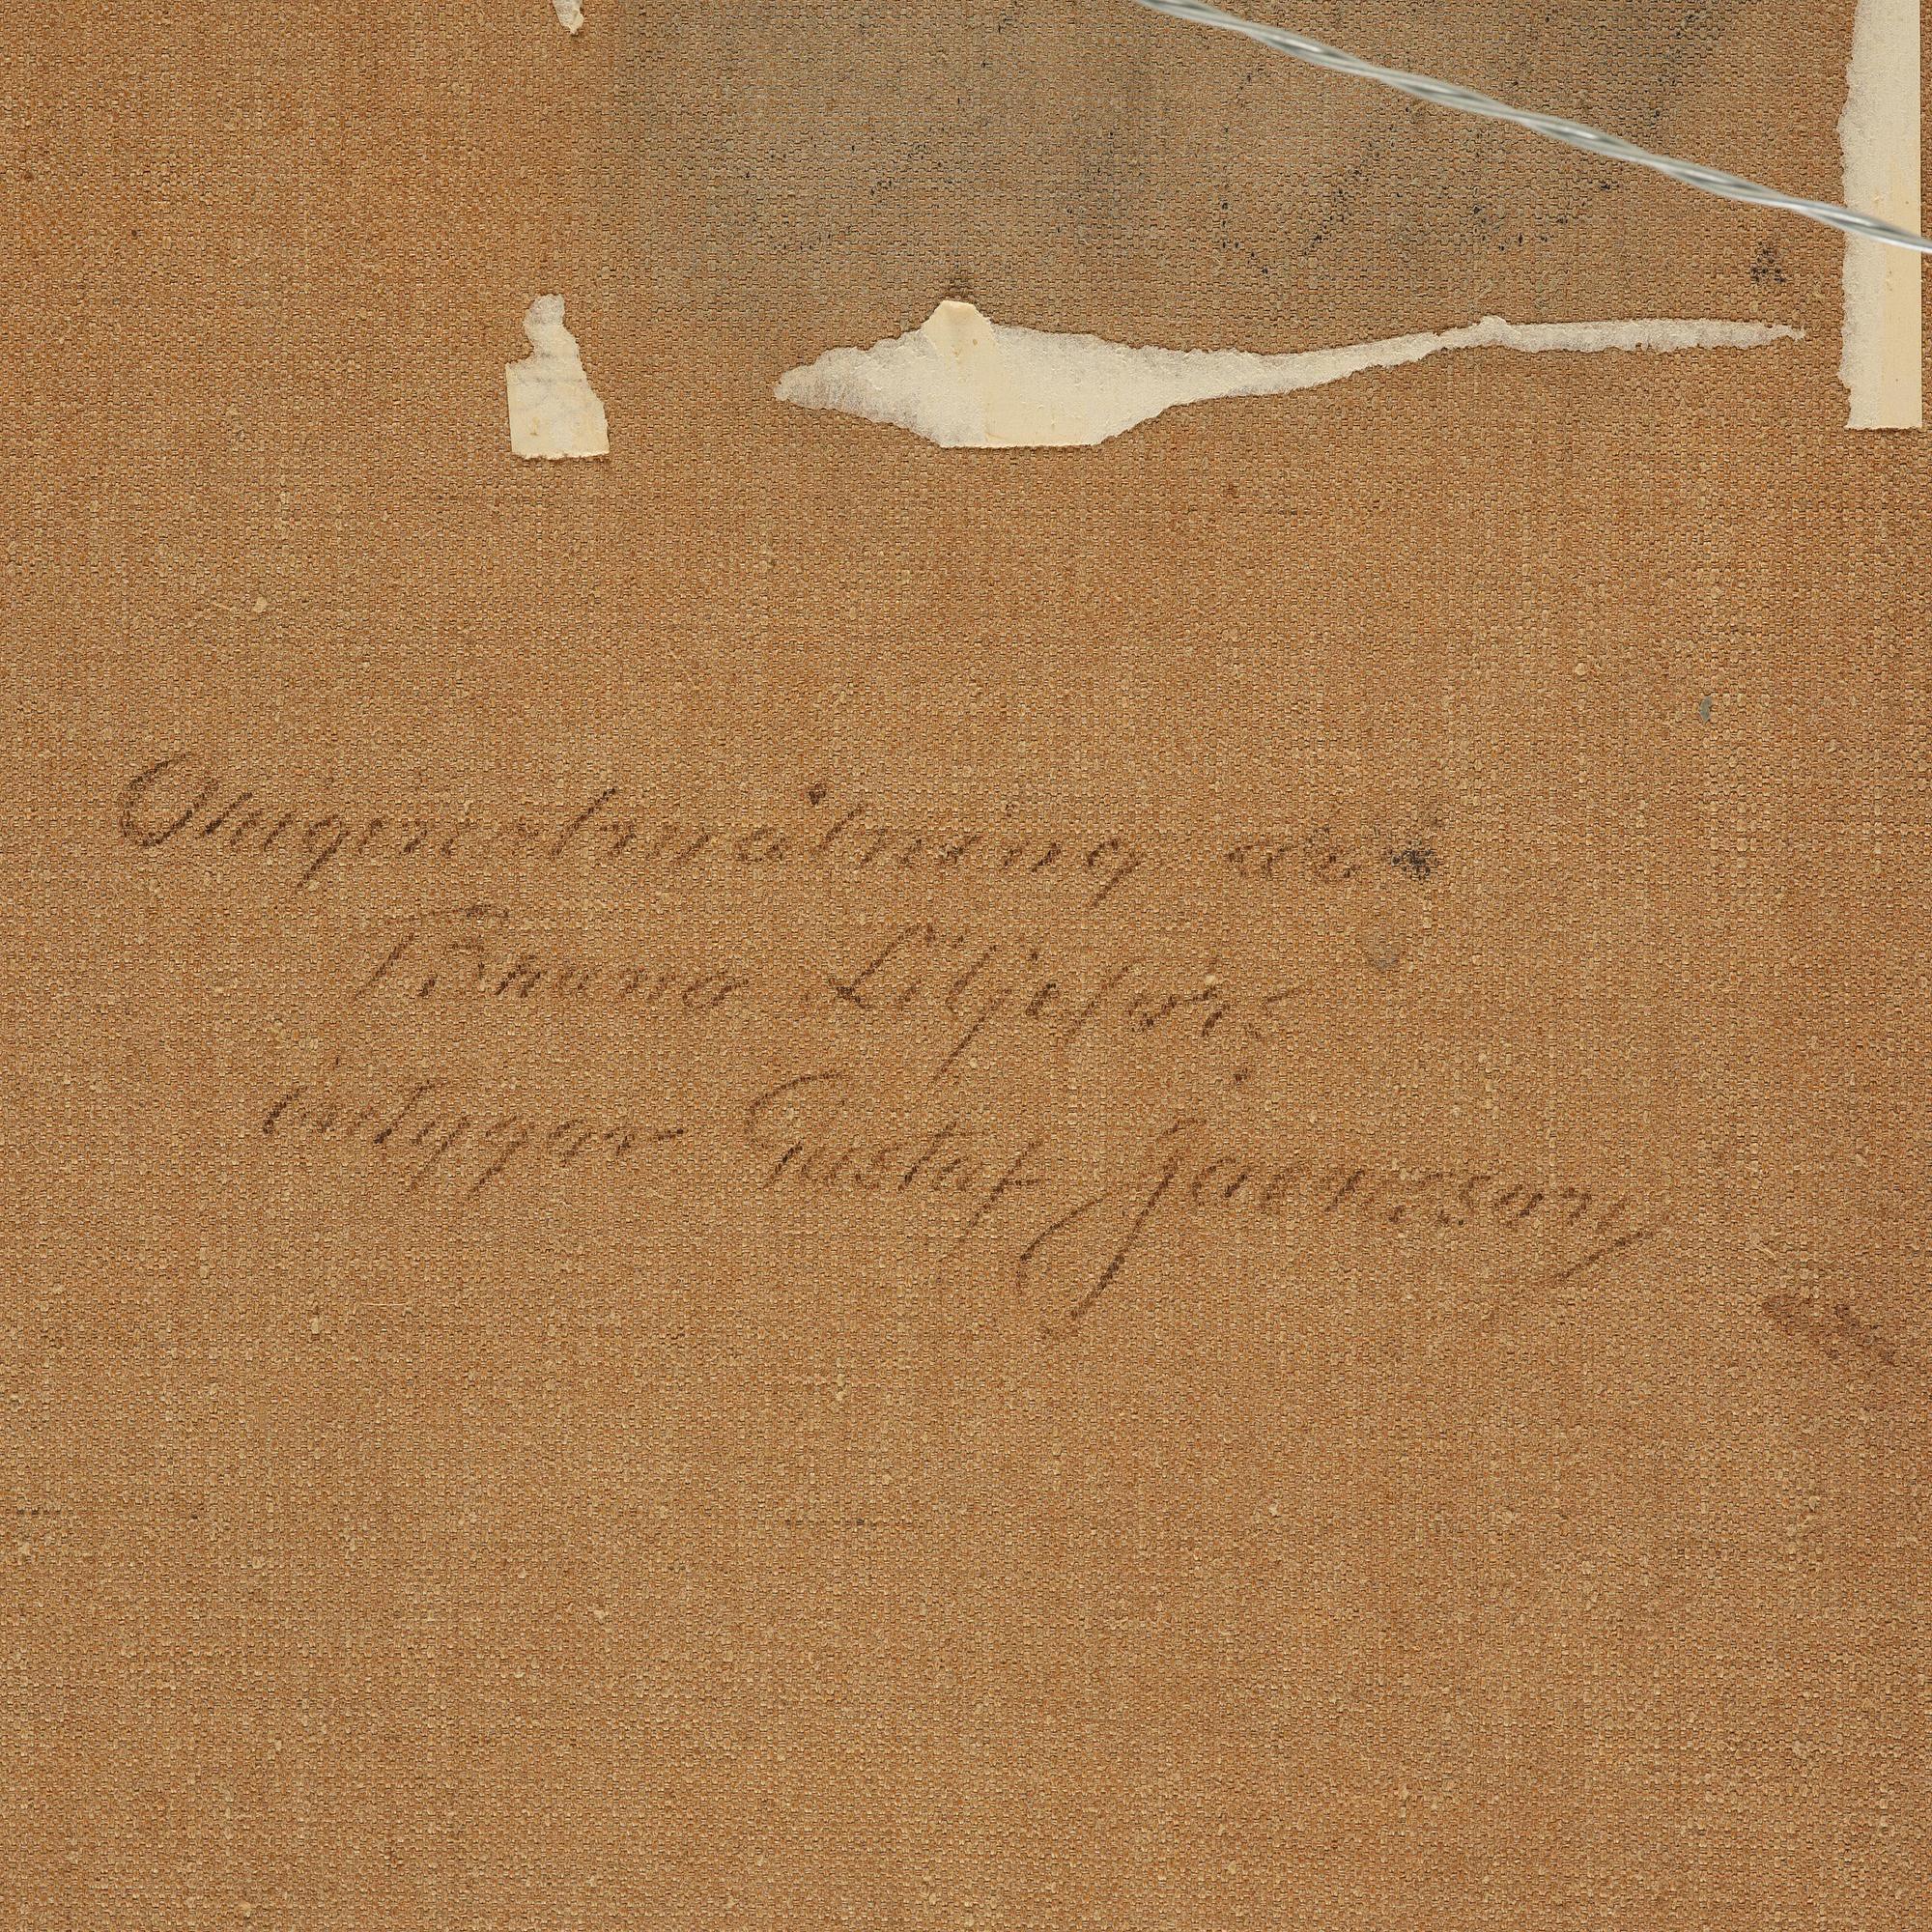 Origin målning af
Bruno Liljefors
intygar Gustaf Joenson